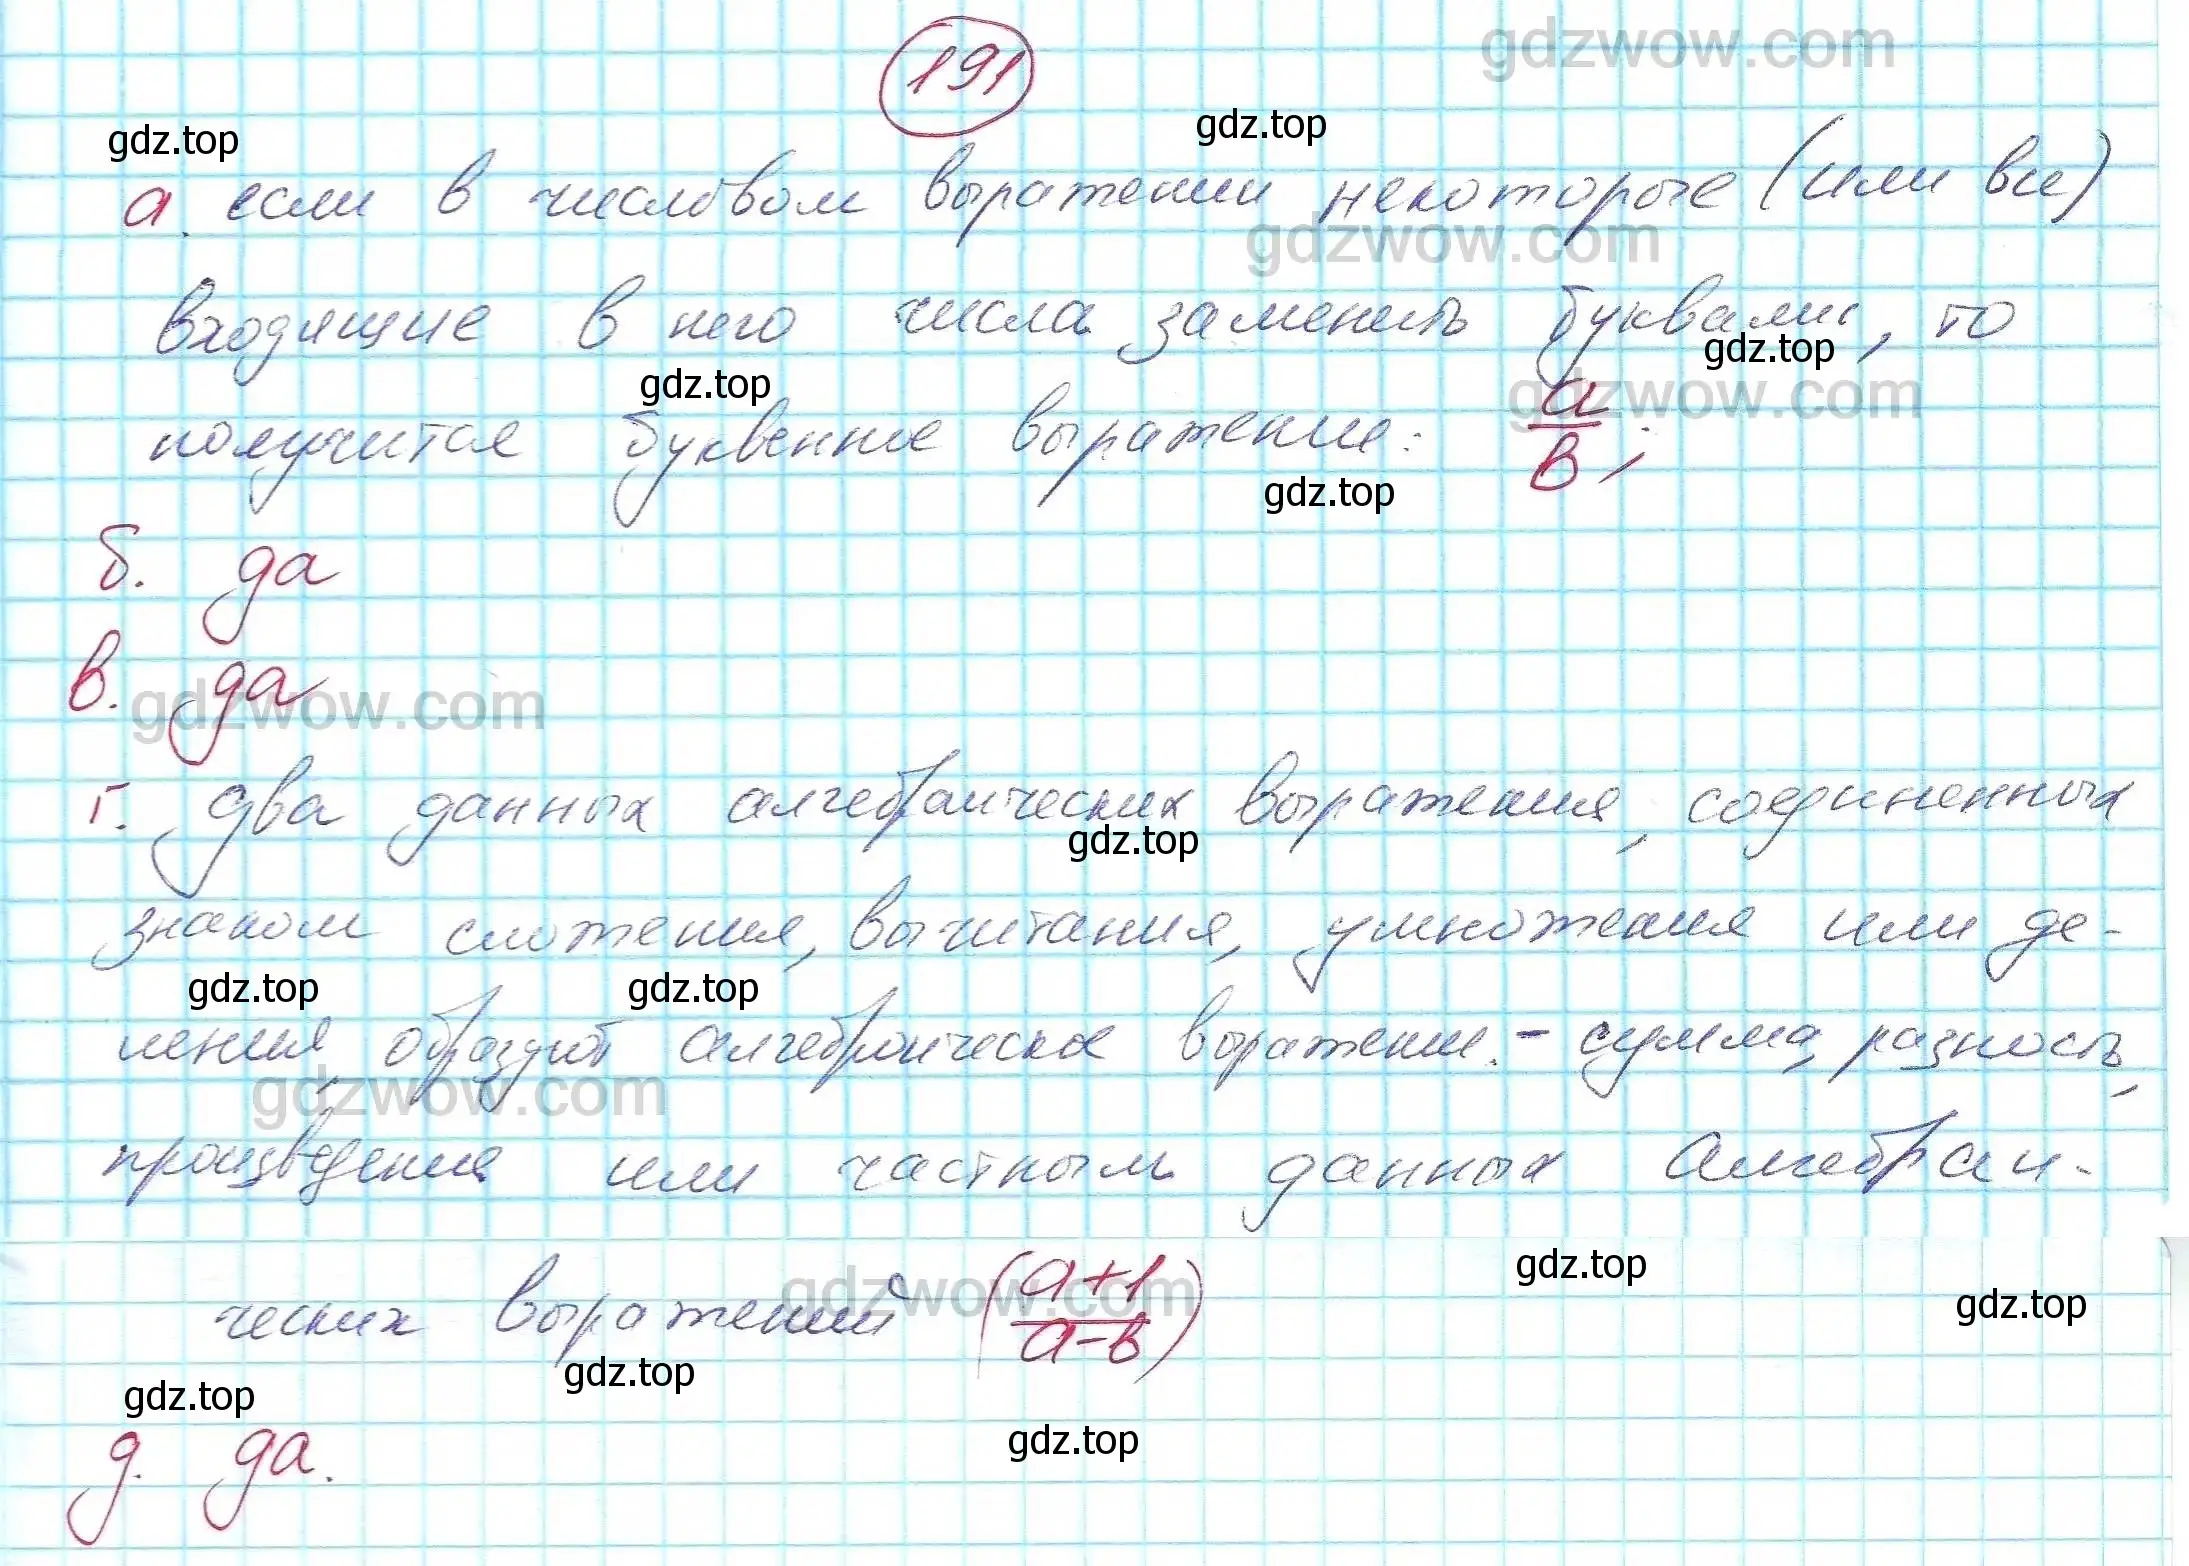 191
gdzwow.com
gdz.top gdz.top
а. если в числовом выражении некоторые (или все)
gdzwow.com
входящие в него числа заменить буквами, то
gdz.top gdz.top
gdzwow.com
получится буквенное выражение: a/в;
gdz.top
б. да
в. да
gdzwow.com
г. два данных алгебраических выражения, соединенных
gdz.top
знаком сложения, вычитания, умножения или де-
gdz.top gdz.top
ления, образуют алгебраическое выражение - сумма, разность,
gdzwow.com
произведения или частным данных алгебраи-
gdz.top
ческих выражений (a+1/a-в)
gdzwow.com
gdz.top
gdz.top
gdz.top
gdz.top
д. да.